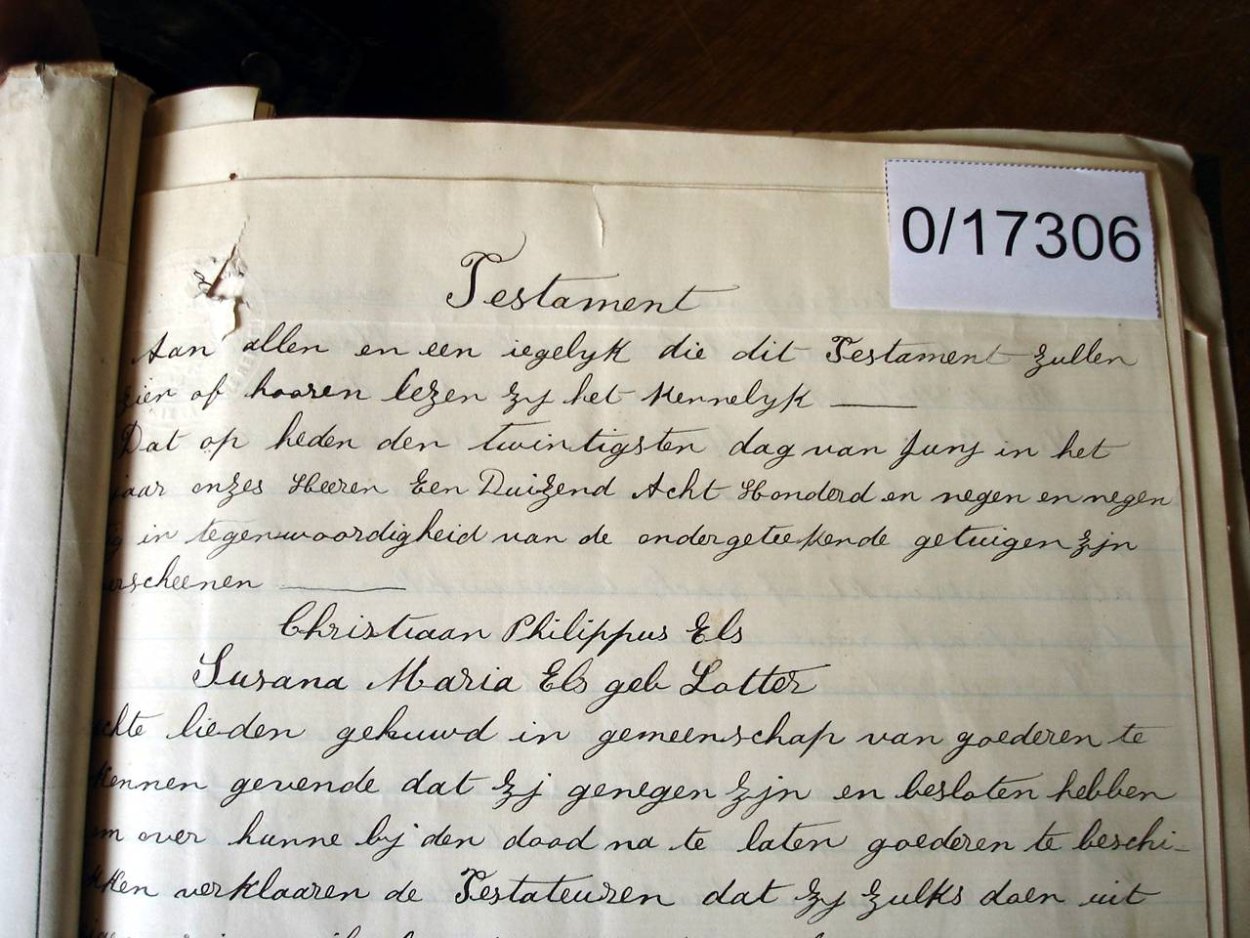 0/17306
Testament
Aan allen en een iegelyk die dit Testament zullen
zien of hooren lezen zy het kennelyk
Dat op heden den twintigsten dag van Juny in het
jaar onzes Heeren Een Duizend Acht Honderd en negen en negen
tig in tegenwoordigheid van de ondergeteekende getuigen zyn
verscheenen
Christiaan Philippus Els
Susana Maria Els geb Lotter
echte lieden gehuwd in gemeenschap van goederen te
kennen gevende dat zy genegen zyn en besloten hebben
om over hunne by den dood na te laten goederen te beschi-
kken verklaaren de Testateuren dat zy zulks doen uit